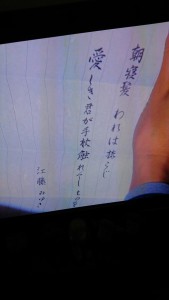 朝寝髪 われは梳らじ
愛しき君が手枕触れてしものを
江藤